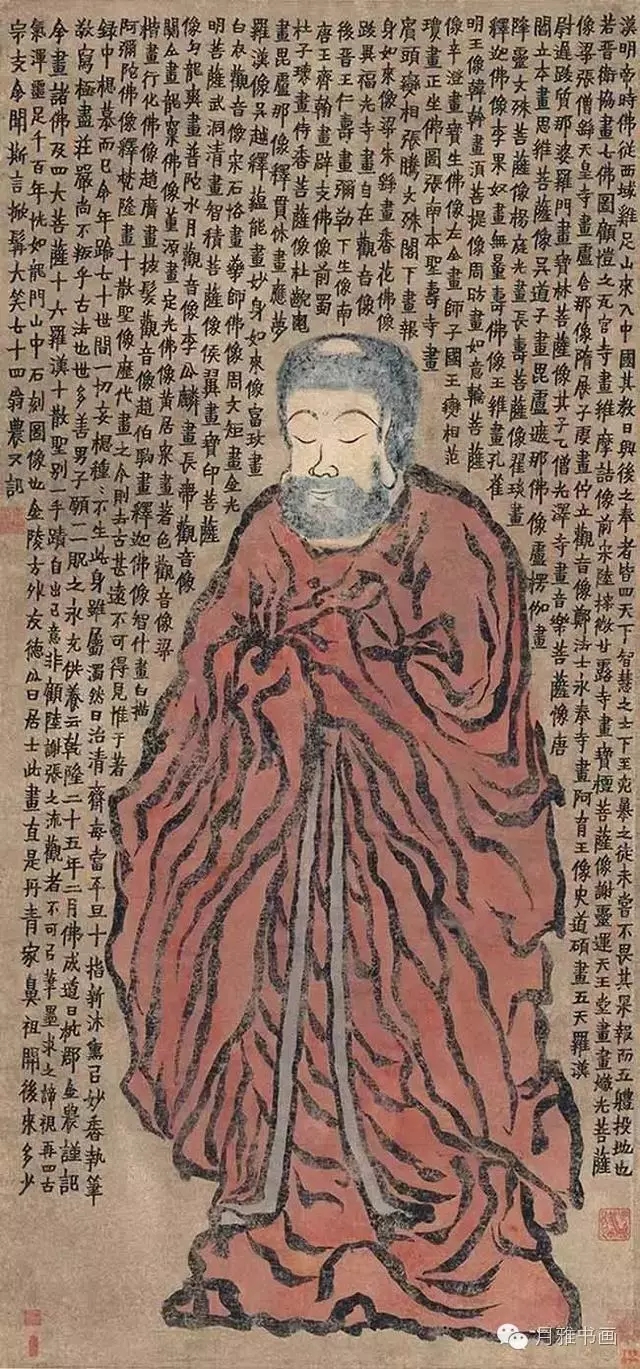 漢明帝時佛從西域雞足山來入中國其教日興後之奉者皆四天下智慧之士下至暴之徒未嘗不畏其果報而五體投地也
若晉衛協畫七佛圖顧愷之瓦官寺畫維摩詰像前宋陸探微甘露寺畫寶檀菩薩像謝靈運天王堂畫畫熾光菩薩
像梁張僧繇天皇寺畫盧舍那像隋展子虔畫佇立觀音像鄭法士永泰寺畫阿育王像史道碩畫五天羅漢
尉遲跋質那婆羅門畫寶林菩薩像其子乙僧光澤寺畫音樂菩薩像唐
閻立本畫思維菩薩像吳道子畫毘盧遮那佛像盧楞伽畫
降靈文殊菩薩像楊庭光畫長壽菩薩像翟琰畫
釋迦佛像李果奴畫無量壽佛像王維畫孔雀
明王像韓幹畫須菩提像周昉畫如意輪菩薩
像辛澄畫寶生佛像左全畫師子國王變相范
瓊畫正坐佛圖張南本聖壽寺畫
賓頭變相張騰文殊閣下畫報
身如來像梁朱繇畫香花佛像
跋異福光寺畫自在觀音像
後晉王仁壽畫彌勒下生像南
唐王齊翰畫辟支佛像前蜀
杜子瓌畫侍香菩薩像杜齯龜
畫毘盧那像釋貫休畫應夢
羅漢像吳越釋蘊能畫妙身如來像富玫畫
白衣觀音像宋石恪畫藥師佛像周文矩畫金光
明菩薩武洞清畫智積菩薩像侯翼畫寶印菩薩
像勾龍爽畫普陀水月觀音像李公麟畫長帶觀音像
關仝畫龍窠佛像董源畫定光佛像黃居寀畫著色觀音像梁
楷畫行化佛像趙廣畫披髮觀音像趙伯駒畫釋迦佛像智什畫白描
阿彌陀佛像釋梵隆畫十散聖像歷代畫之今則去古甚遠不可得見惟于著
錄中想慕而已今年踰七十世間一切妄想種種不生此身雖屬濁然日治清齋每當平旦十指新沐熏以妙香執筆
敬寫極盡莊嚴尚不叛乎古法也世多善男子願一二眼之永充供養云乾隆二十五年二月佛成道日杭郡金農謹記
余畫諸佛及四大菩薩十六羅漢十散聖別一手蹟自出己意非顧陸謝張之流觀者不可以筆墨求之諦視再四古
氣渾噩足千百年恍如龍門山中石刻圖像也金陵方外友德公曰居士此畫直是丹青家鼻祖開後來多少
宗支余聞斯言掀髯大笑七十四翁農又記
月雅书画